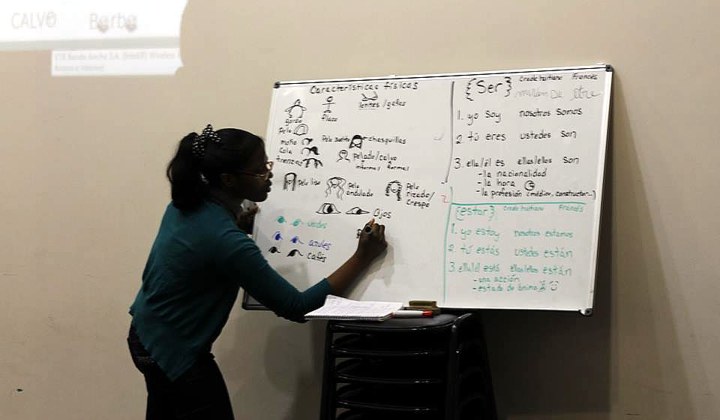 CALVO Barba
Características físicas
gordo
flaco
lentes / gafas
Pelo
moño
Cola
trenzas
Pelo suelto
chasquillas
Pelado/calvo
informal formal
Pelo liso
Pelo
ondulado
Pelo
rizado/
crespo
Ojos
verdes
azules
cafés
{Ser} Creole haitiano Francés
être
1. yo soy nosotros somos
2 tú eres ustedes son
3. ella/él es ellas/ellos son
- la nacionalidad
- la hora
- la profesión (médico, constructor...)
{estar} creole haitiano Francés
1. yo estoy nosotros estamos
2. tú estás ustedes están
3. ella/él está ellas/ellos están
- una acción
- estado de ánimo